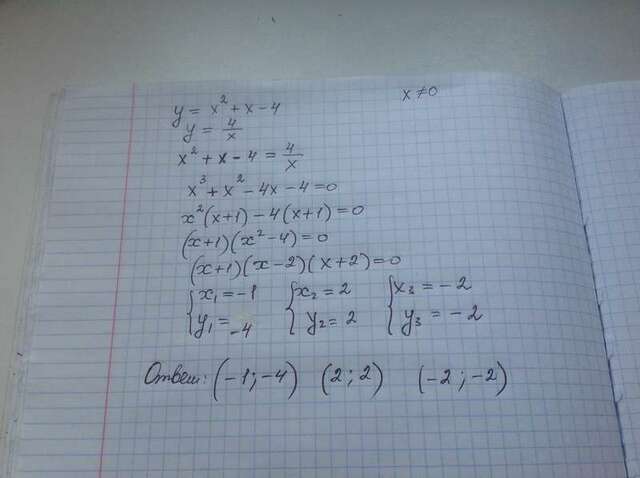 y = x² + x - 4    x ≠ 0
y = 4/x
x² + x - 4 = 4/x
x³ + x² - 4x - 4 = 0
x²(x+1) - 4(x+1) = 0
(x+1)(x²-4) = 0
(x+1)(x-2)(x+2) = 0
{x₁ = -1    {x₂ = 2    {x₃ = -2
y₁ = -4    y₂ = 2    y₃ = -2
Ответ: (-1; -4)    (2; 2)    (-2; -2)